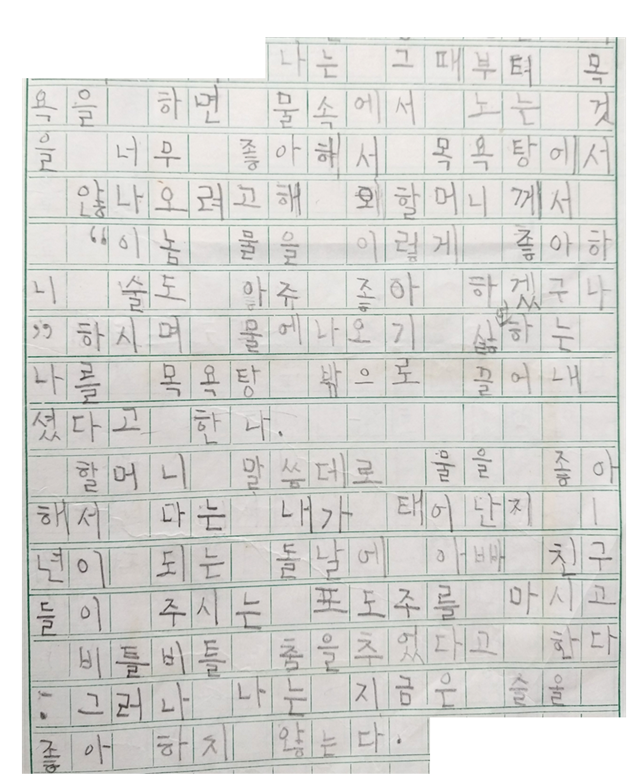 나는 그때부터 목
욕을 하면 물속에서 노는 것
을 너무 좋아해서 목욕탕에서
않나오려고해 외할머니께서
“이놈 물을 이렇게 좋아하
니 술도 아주 좋아 하겠구나
” 하시며 물에나오기 싫어하는
나를 목욕탕 밖으로 끌어내
셨다고 한다.
할머니 말씀대로 물을 좋아
해서 나는 내가 태어난지 1
년이 되는 돌날에 아빠 친구
들이 주시는 포도주를 마시고
비틀비틀 춤을추었다고 한다
. 그러나 나는 지금은 술을
좋아 하지 않는다.